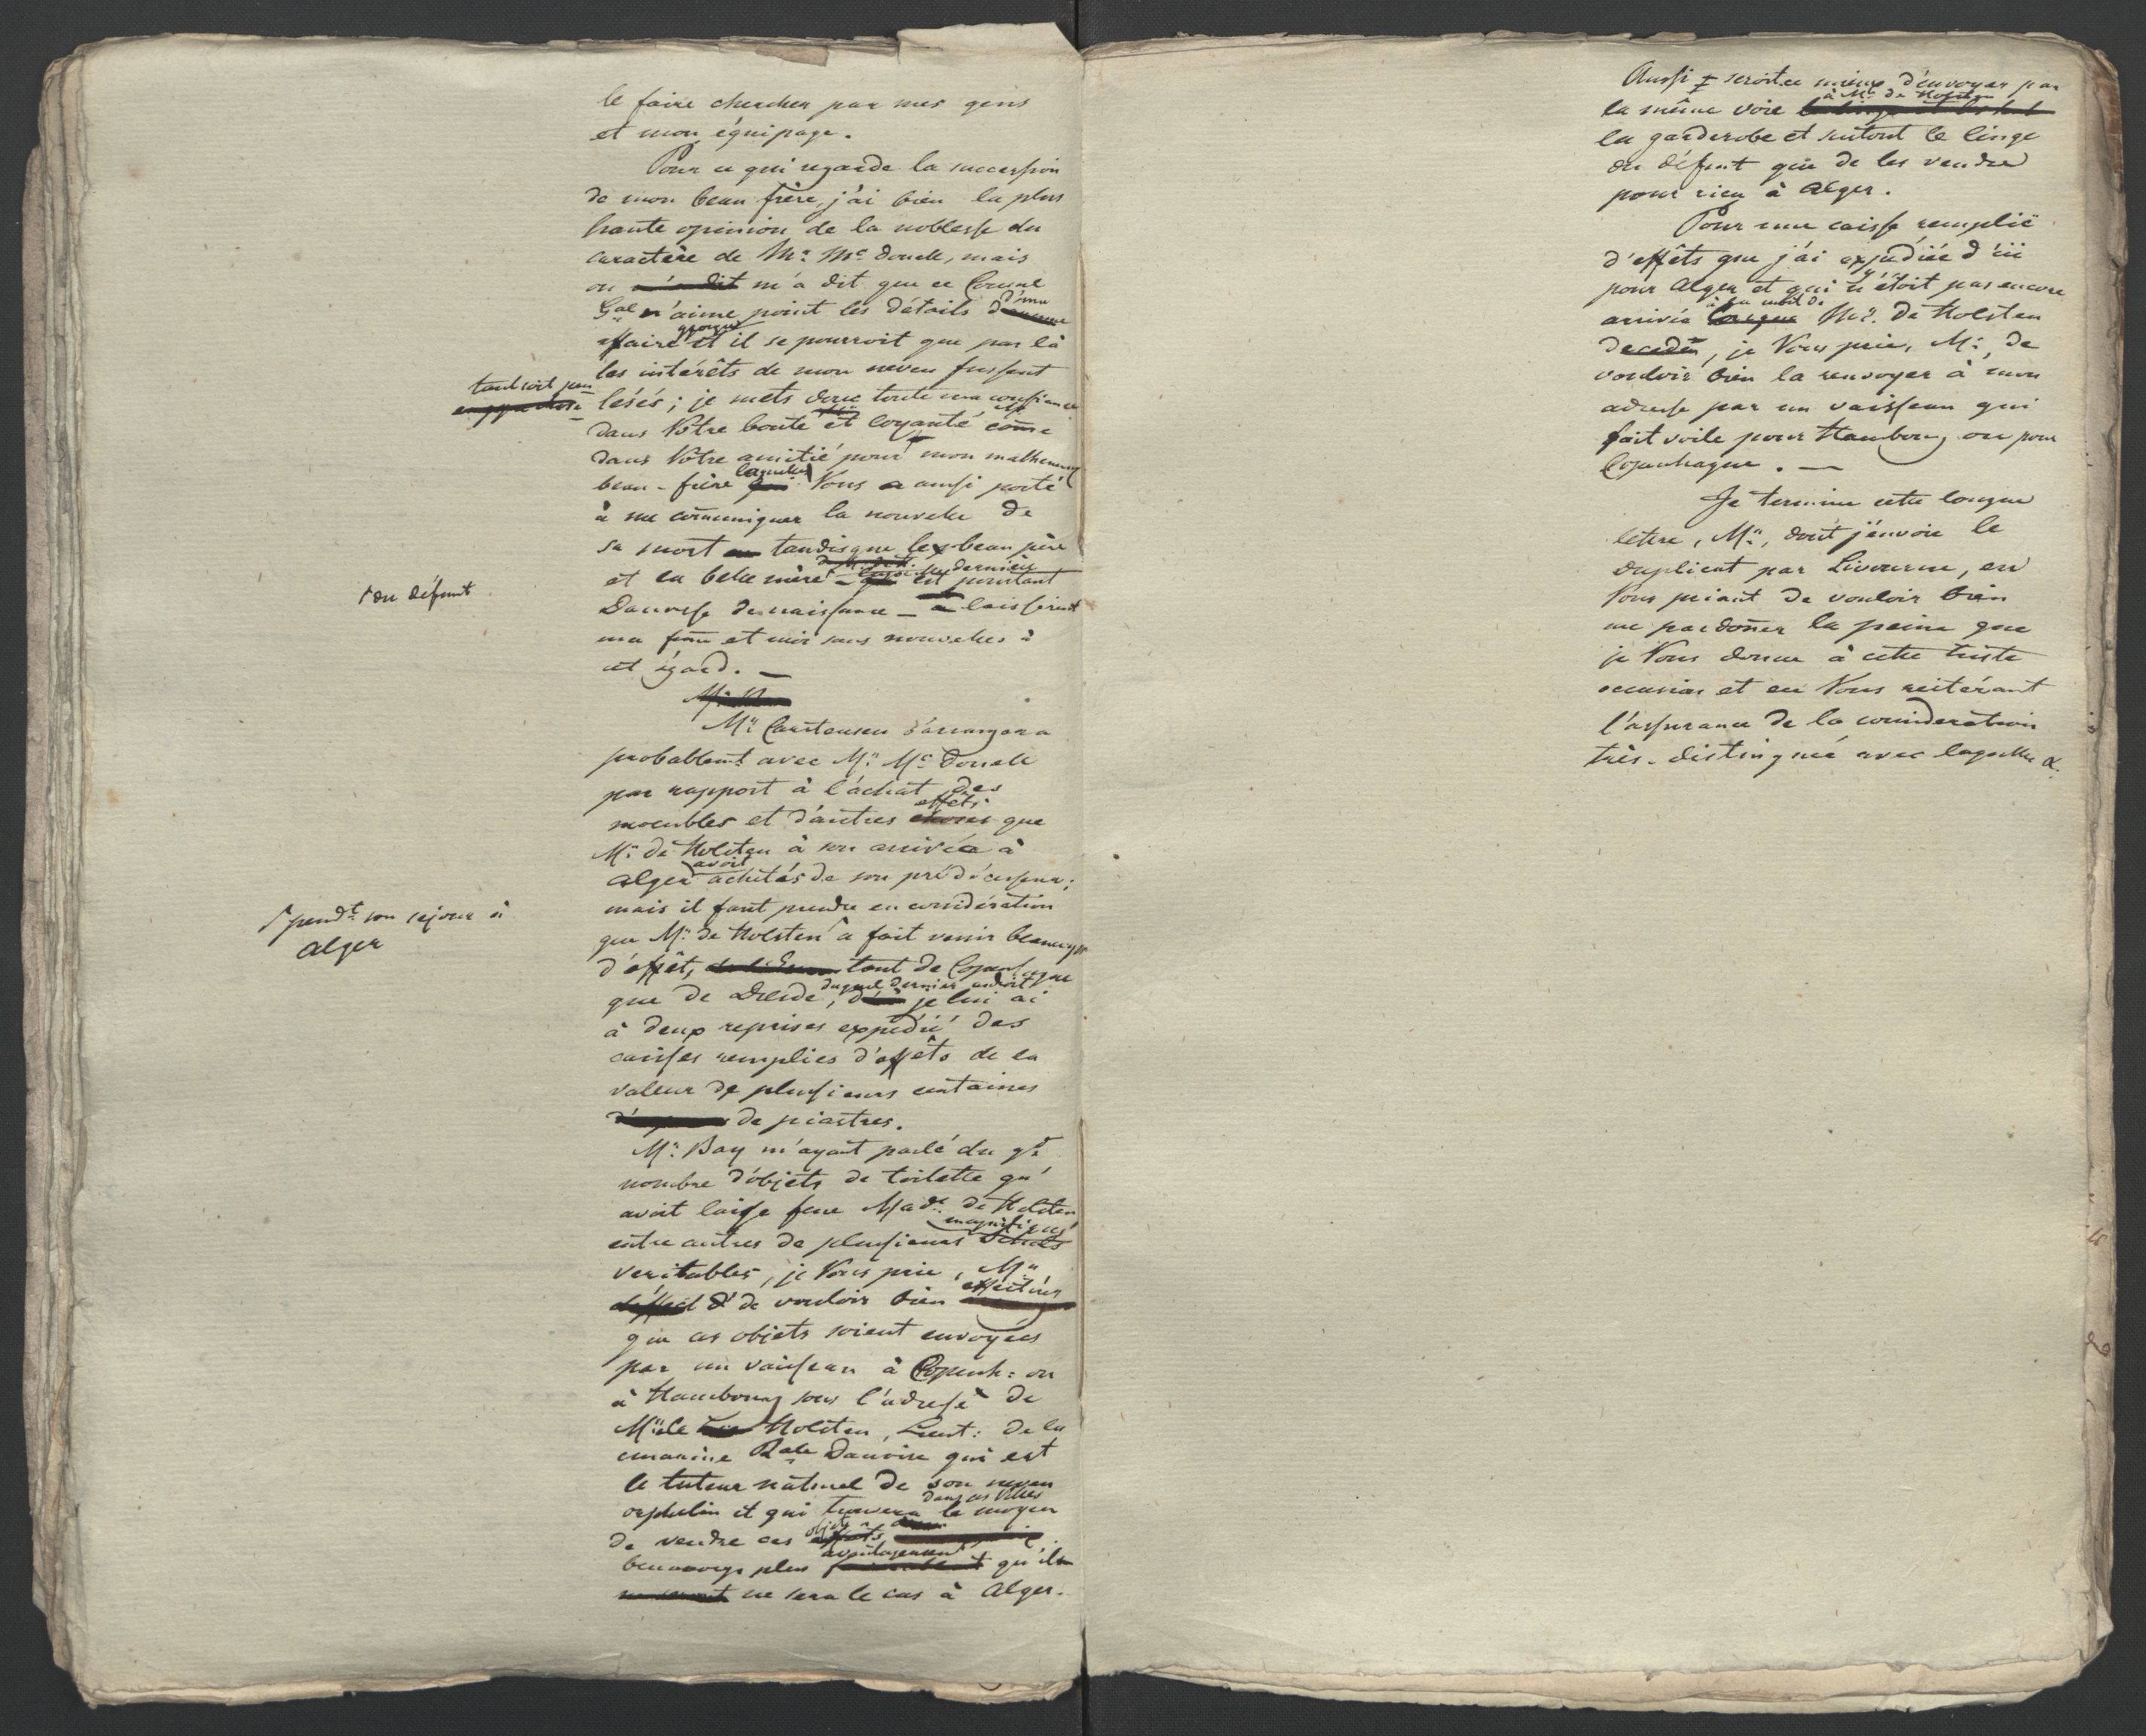 le faire chercher par mes gens
et mon équipage.
Pour ce qui regarde la succession
de mon beau frère, j'ai bien la plus
haute opinion de la noblesse du
caractère de Mr. Mc Donell, mais
on m'a dit m'a dit que ce Consul
Gal n'aime point les détails d'une
affaire et il se pourroit que par là
les intérêts de mon neveu fussent
tant soit peu
lésés; je mets donc toute ma confiance
dans Votre bonté et loyauté come
dans Votre amitié pour mon malheureux
beau-frère laquelle Vous a aussi porté
à me comuniquer la nouvelle de
sa mort tandisque le beau père
et la belle mère dernière est pourtant
⌈du défunt
Danoise de naissance - laissèrent
ma fme et moi sans nouvelles à
cet égard. —
Mr. Carstensen s'arrangera
probablemt avec Mr. Mc Donell
par rapport à l'achat des
effets
moeubles et d'autres choses que
Mr. de Holsten à son arrivée à
avoit
Alger achetés de son prédécesseur;
mais il faut prendre en considération
que Mr. de Holsten a fait venir beaucoup
⌈pendt. son sejour à
Alger
d'effêts tant de Copenhague
duquel dernier endroit
que de Dresde, je lui ai
à deux reprises expédié des
caisses remplies d'effêts de la
valeur de plusieurs centaines
de piastres.
Mr. Bay m'ayant parlé du gd
nombre d'objets de toilette qu'
avoit laissé feue Made. de Holsten
magnifiques
entre autres de plusieurs Schals
veritables, je Vous prie, Mr.
de vouloir bien effectuer
que ces objets soient envoyés
par un vaisseau à Copenh: ou
à Hambourg sous l'adresse de
Mr. de Holsten, Lieut: de la
marine Rale Danoise qui est
le tuteur naturel de son neveu
dans ces villes
orphelin et qui trouvera le moyen
de vendre ces objets
avantageusement
beaucoup plus qu'il
ne sera le cas à Alger.
Aussi seroit-ce mieux d'envoyer par
à Mr. de Holsten
la même voie le linge
la garderobe et surtout le linge
du défunt que de les vendre
pour rien à Alger.
Pour une caisse remplie
d'effêts que j'ai expédiée d'ici
pour Alger et qui n'étoit pas encore
à la mort de
arrivée lorsque Mr. de Holsten
decedé, je Vous prie, Mr., de
vouloir bien la renvoyer à mon
adresse par un vaisseau qui
fait voile pour Hambourg ou pour
Copenhague. —
Je termine cette longue
lettre, Mr., dont j'envoie le
duplicat par Livourne, en
Vous priant de vouloir bien
me pardoner la peine que
je Vous donne à cette triste
occasion et en Vous reitérant
l'assurance de la consideration
très-distinguée avec laquelle &.